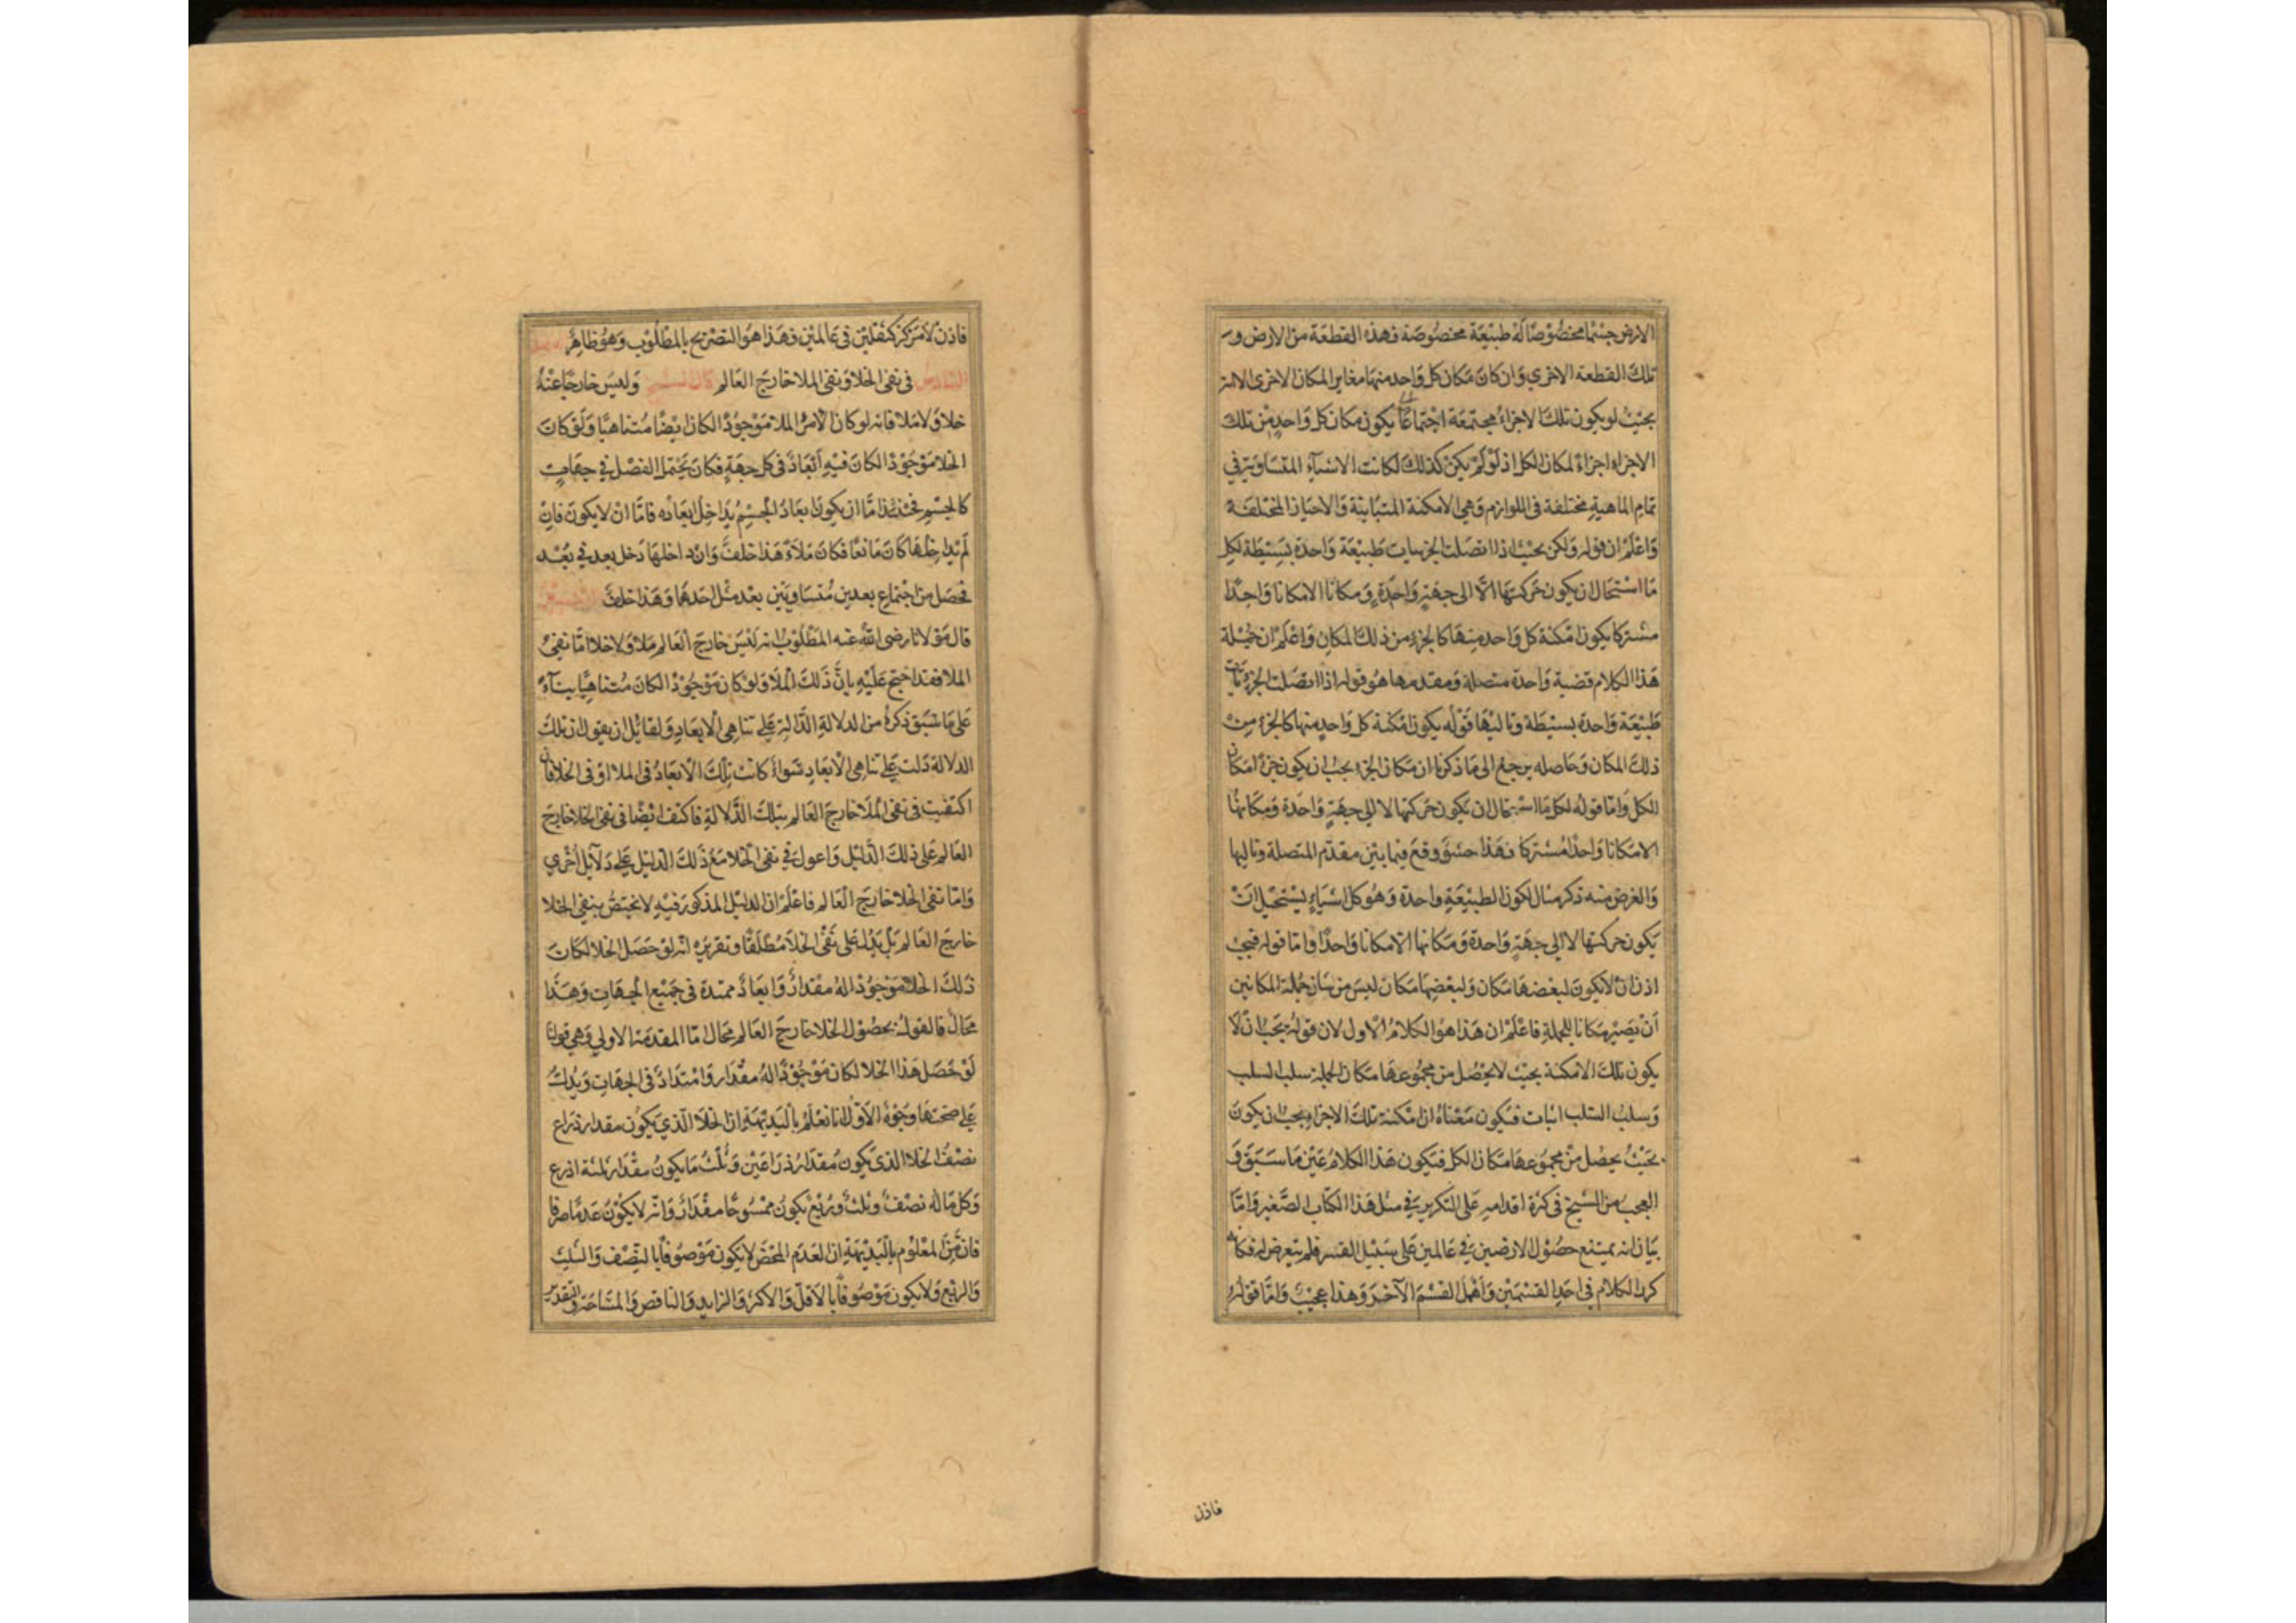 الارض جسْما مخصُوْصًا لَهُ طبيْعَة مخصُوصَة وهذه القطعَة من الارض و
تلكَ القطعة الاخرى وَان كانَ مَكان كل وَاحد منهَا مغاير المكان الاخرى الا انه
بحيْثُ لو يكون تلكَ الاجزاءُ مجتمعَة اجْتماعًا يكون مكان كل وَاحدٍ مِنْ تلك
الاجزاء اجزاءً لمكان الكل اذ لوْ لمْ يكنْ كذلكَ لكانت الاشيآء المتسَاويَة في
تمامِ الماهية مختلفة فى اللوازم وَهي الامكنة المتبَاينة وَالاحيَاز المختلفَة
وَاعْلَمْ ان قوله وَلكن بحيْث اذا اتصَلت الجزييات طَبيْعَة وَاحدة بَسِيْطَة لكل
مَا اسْتحَال ان يكون حَركتهَا الّا الى جهَةٍ وَاحدَةٍ وَمكانا الا مكانا وَاحدًا
مشتركا يكون امكنة كل وَاحد منهَا كالجزءِ من ذلكَ المكانِ وَاعْلَمْ ان جُمْلة
هَذا الكلام قضية وَاحدة متصلة وَمقدمها هوُ قوله اذا اتصَلت الجزءيات
طَبيْعَة وَاحدة بسيْطة وتاليْهَا قوْلُه يكون امْكنة كل وَاحدٍ منها كالجزءِ مِنْ
ذلكَ المكَان وَحَاصله يرجع الى مَا ذكرنا ان مَكان الجزء يجبُ ان يكون جزءَ امكان
للكل وَامّا قوله لكل مَا استحال ان يكون حَركتها الا الي جهَةٍ وَاحدَة وَمكانهَا
الا مكانا وَاحدًا مُشتركا فهَذا حشو وقعَ فيما بيْن مقدم المتصلة وتاليها
وَالغرض منه ذكر مثال لكون الطبيْعَةِ واحدة وَهُو كل اشيَاءٍ يسْتحيل انْ
يَكون حركتها الا الي جهَةٍ واحدة وَمكانها الا مكانا وَاحدًا وامّا قوله فيجب
اذن انْ لا يكونَ لبعْضهَا مَكان وَلبعْضِهَا مَكان ليسَ من شان جُمْلة المكانين
أنْ يَصيْر مكانا للجملةِ فاعْلَمْ ان هَذا هوُ الكلامُ الاول لان قولهُ يَجب انْ لا
يكون تلكَ الامكنة بحيْث لا يحصُل من مجمُوعهَا مَكان الجملة سلب السلب
وَسلبُ السَّلب اثبات فيَكون مَعْناهُ ان امْكنة تلكَ الاجزاءِ يجب ان يكونَ
بحَيْثُ يحصُل منْ مجمُوعهَا مَكان الكل فيَكون هَذا الكلامُ عَيْن مَا سَبَقَ وَ
العجبُ من الشيخ في كثرة اقدامهِ عَلى التكرير في مثل هَذا الكتَاب الصَّغيْر وَامّا
بيَان انه يمتنع حصُوْل الارضين في عَالمين عَلى سَبيْل القسر فلم يتعرض له فكانه
كرر الكلام في احَدِ القسْمَيْن وَاَهْمَل القسْمَ الآخَر وَهذا عجيْبٌ وَامَّا قوْله
فاذن
فاذنْ لا مَركز كثقليْن في عَالميْن وهَذا هوَ التصْريح بالمطْلوْب وَهُو ظاهِر الفصل
السَّادس في نفى الخلا وَنفى الملا خارجَ العَالم قال الشيخ وَليسَ خارجًا عَنْهُ
خلاوَلا مَلا فانه لو كانَ الامرُ الملا مَوْجوْدًا لكانَ ايْضًا مُتناهيًا وَلَوْ كانَ
الخلا مَوْجوْدًا لكانَ فيْهِ اَبْعَادٌ في كل جهَةٍ فكانَ يَحْتمل الفصْل في جهَاتٍ
كالجسْمِ فحينئذ امّا ان يكون ابعَادُ الْجسْمِ يدَاخلُ ابعَاده فامّا انْ لا يكونَ فانْ
لَمْ يدَاخِلْهَا كانَ مَانعًا فكانَ مَلاءً هَذا خلفٌ وَانْ داخلهَا دَخل بعد في بُعْد
فحصَل من اجْتماعِ بعدين مُتسَاويَيْن بعْد مثل احَدهمَا وَهَذا خلفٌ التفسير
قال مَوْلانا رضى اللهُ عنه المَطْلوْبُ انه ليْسَ خارجَ العَالم مَلا وَلا خلا امّا نفىُ
الملا فقد احتج عَليْهِ بانَّ ذلكَ الْملَا وَلو كان مَوْجُوْدًا لكانَ مُتناهيًا بناءً
عَلى مَا سَبَق ذكرهُ من الدلالةِ الدَّالةِ عَلى تناهِى الابعَادِ وَلقائل ان يقول ان تلكَ
الدلالة دَلت عَلى تناهى الاَبعَادِ سَواءً كانتْ تِلكَ الاَبعَادُ في الملا اوْ في الخلا فان
اكتفيت في نفى الْملَا خارج العَالم بتلكَ الدَّلالةِ فاكتف ايْضًا في نفى الخلا خارجَ
العَالم عَلى ذلكَ الدَّليْل وَاعول في نفى الخلا معَ ذلكَ الدليْل عَلى دَلآئِل اُخْرى
وَامّا نفى الخلا خارج العَالم فاعْلَمْ ان الدليْل المذكور فيْهِ لا يختصُّ بنفى الخلا
خارجَ العَالم بلْ يَدُل عَلى نَفْى الخلَا مُطْلَقًا وتقريره انه لو حَصَل الخلا لكانَ
ذلكَ الخلا مَوْجُوْدًا لهُ مقدَارٌ وَابعَادٌ ممتدة في جَميْع الْجهَاتِ وَهَذا
محَالٌ فالقولُ بحصُوْل الخلا خارجَ العَالم محَال امّا المقدمَة الاولي وَهي قولنا
لَوْ حَصَل هَذا الخلا لكان مَوْجُوْدًا لهُ مقْدَار وَامْتدَادٌ في الجهَاتِ وَيَدُلُّ
عَلى صحّتهَا وجوْهُ الاوّل انا نعْلَمُ بالْبَديْهَةِ ان الخلَا الّذي يَكوُن مقدار ذرَاع
نصْفُ الخلا الذى يَكونُ مُقدَارُ ذرَاعَيْن وَثُلثُ مَا يَكونُ مقْدَار ثلثة اذرع
وَكل مَا له نصْفٌ وثلثٌ وَربْعٌ يكونُ ممْسُوحًا مقْدَارٌ وَانّه لا يَكوْنُ عَدمًا صرفا
فانَّ مِنَ المعْلوْم بالْبَديْهَةِ ان العَدم المحْضَ لا يَكون مَوْصُوْفًا بالنّصْف وَالثلث
وَالربْع وَلا يَكون مَوْصُوفًا بالاَقلّ وَالاكثر وَالزايد وَالناقص وَالمسَاحَة وَالتقدير